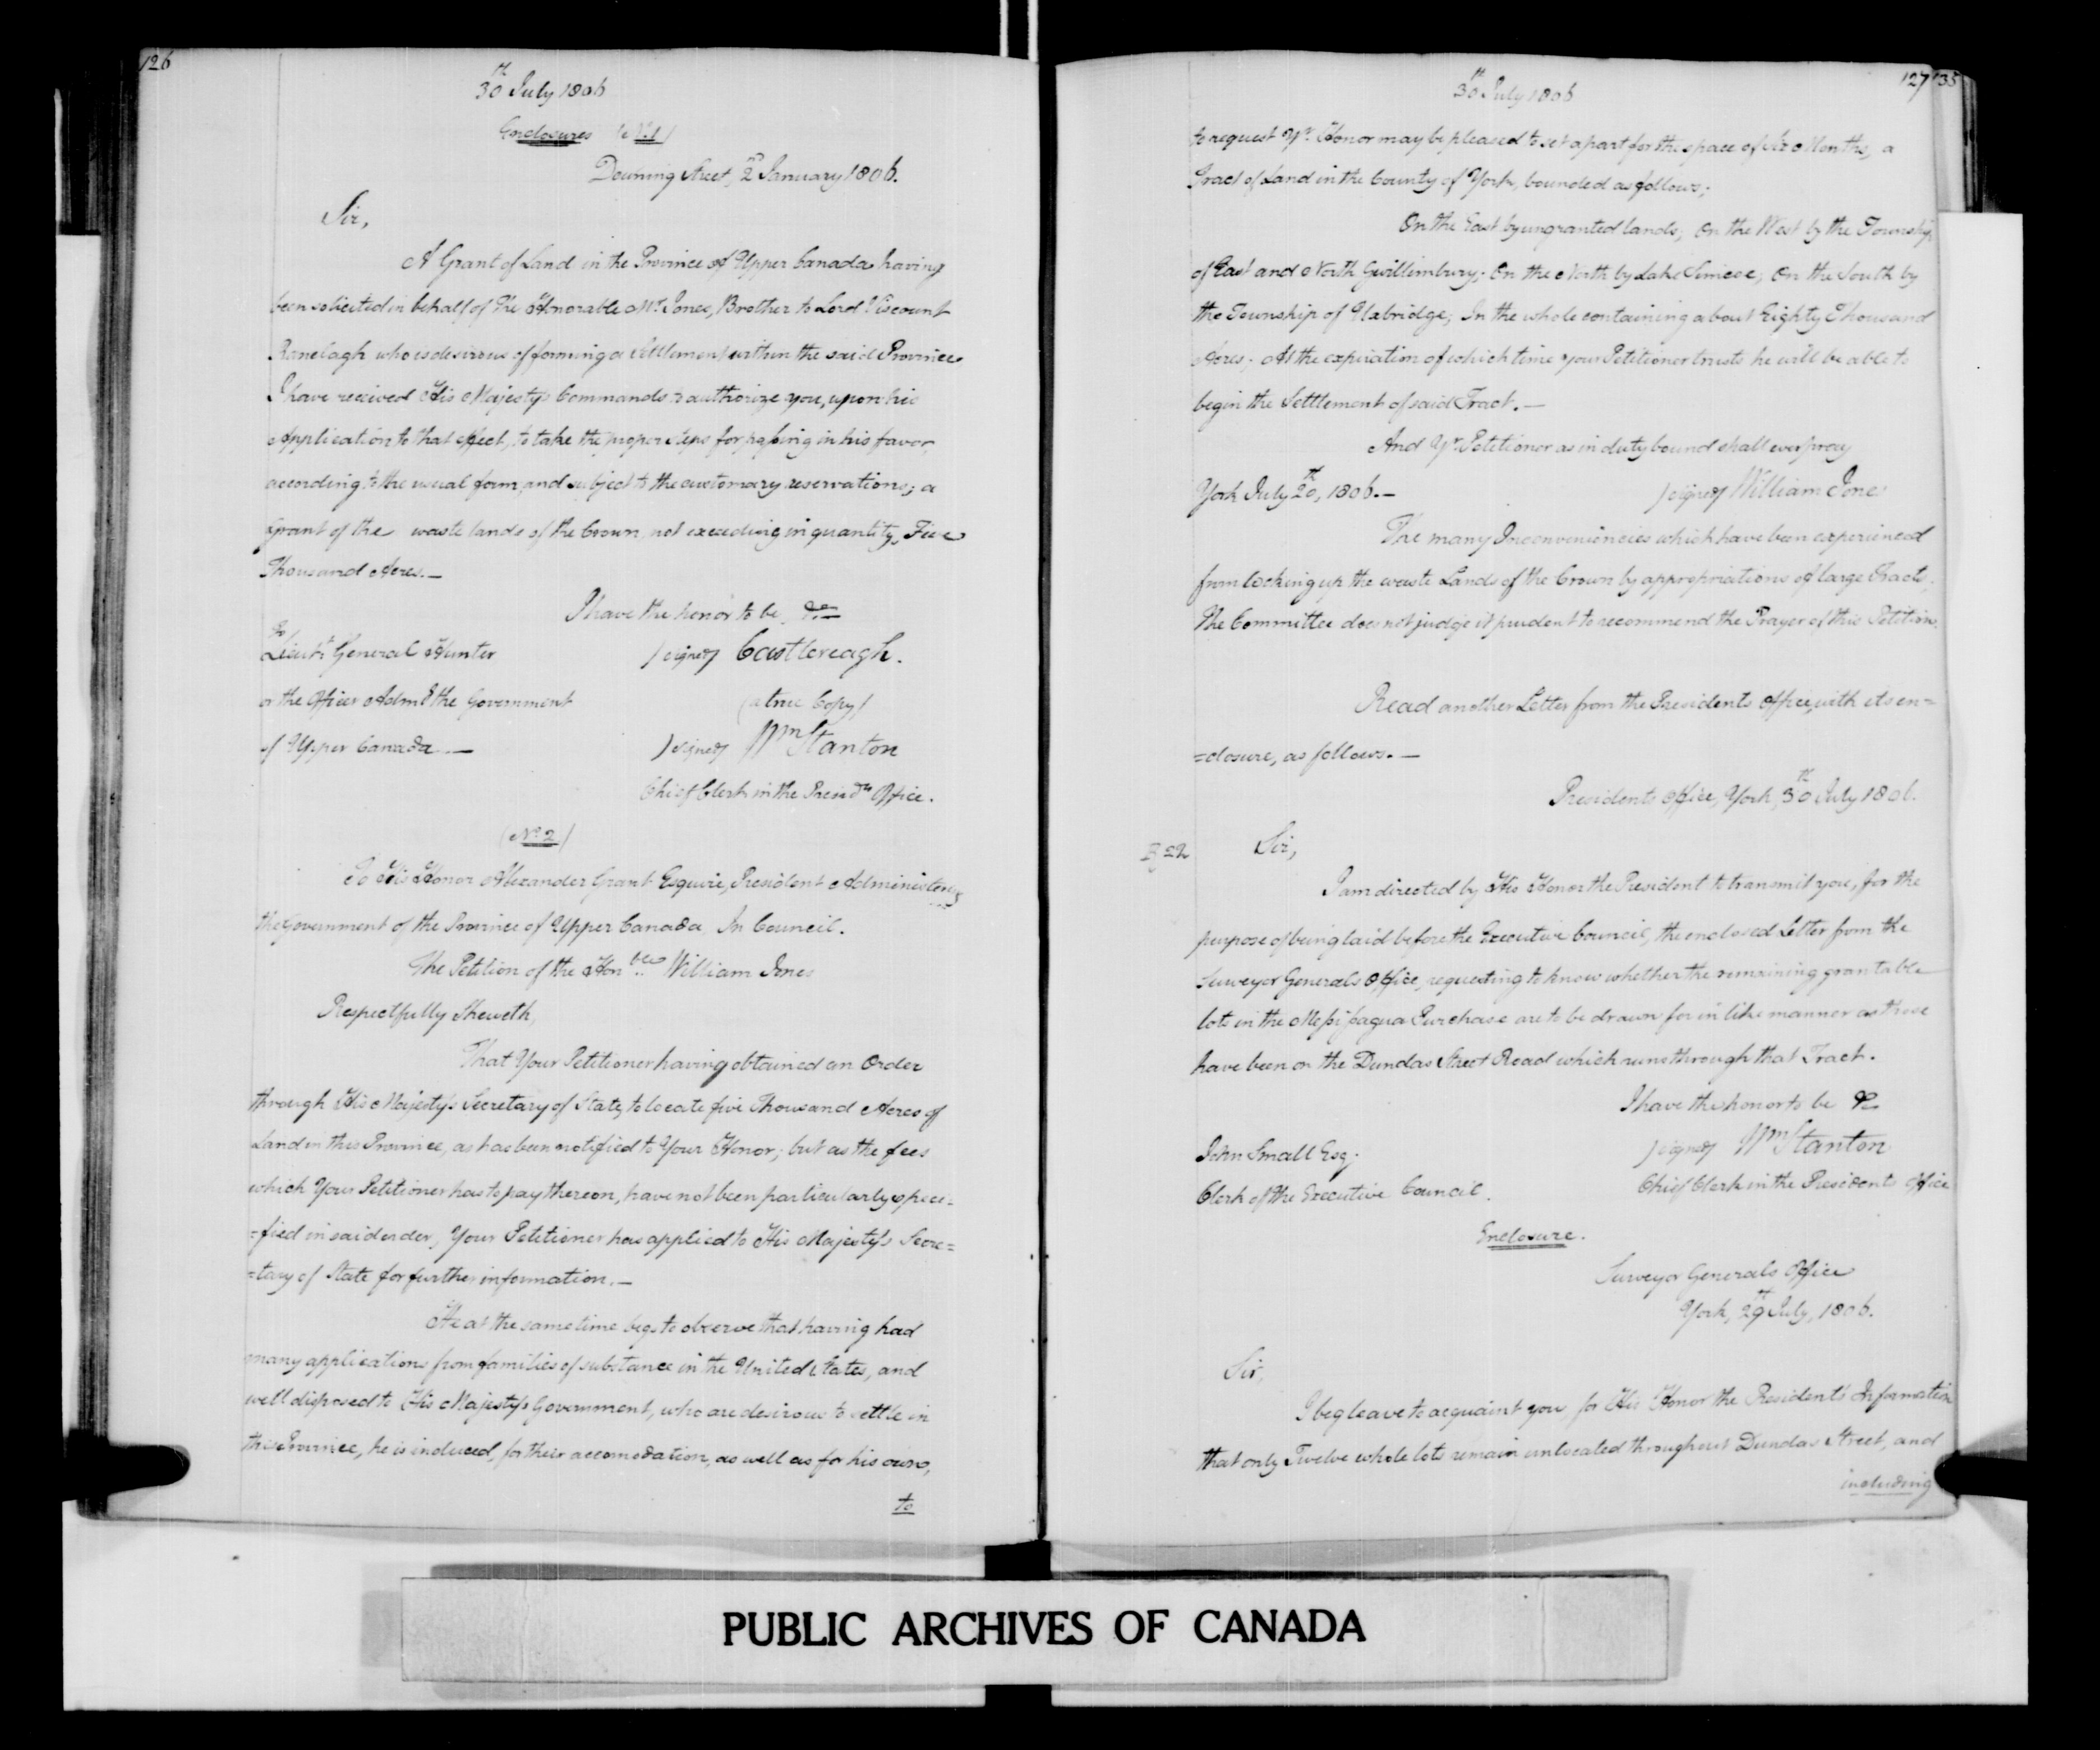 126
30th July 1806
Enclosures (No. 1)
Downing Street, 2nd January 1806.
Sir,
A Grant of Land in the Province of Upper Canada having
been solicited in behalf of the Honorable Mr. Jones, Brother to Lord Viscount
Ranelagh who is desirous of forming a Settlement within the said Province
I have received His Majesty's Commands to authorize you, upon his
Application to that effect, to take the proper steps for passing in his favor,
according to the usual form, and subject to the customary reservations; a
Grant of the waste lands of the Crown not exceeding in quantity, Five
Thousand Acres.—
I have the honor to be &c—
To
Lieut. General Hunter
(signed) Castlereagh.
or the Officer Adm.g the Government
(a true Copy)
of Upper Canada.—
(signed) Wm Stanton
Chief Clerk in the Presid.ts Office.
(No. 2)
To His Honor Alexander Grant Esquire, President Administering
the Government of the Province of Upper Canada In Council.
The Petition of the Hon.ble William Jones
Respectfully Sheweth,
That Your Petitioner having obtained an Order
through His Majesty's Secretary of State, to locate five Thousand Acres of
Land in this Province, as has been notified to Your Honor; but as the fees
which Your Petitioner has to pay thereon, have not been particularly speci=
=fied in said order, Your Petitioner has applied to His Majesty's Secre=
=tary of State for further information.—
He at the same time begs to observe that having had
many applications from families of substance in the United States, and
well disposed to His Majesty's Government, who are desirous to settle in
this Province, he is induced, for their accomodation, as well as for his own,
to
127 135
30th July 1806
to request Yr. Honor may be pleased to set apart for the space of six Months, a
Tract of Land in the County of York, bounded as follows;
On the East by ungranted lands; On the West by the Township
of East and North Gwillimbury; On the North by Lake Simcoe; On the South by
the Township of Uxbridge; In the whole containing about Eighty Thousand
Acres. At the expiration of which time your Petitioner trusts he will be able to
begin the Settlement of said Tract.—
And Yr. Petitioner as in duty bound shall ever pray
York July 20th, 1806.—
(signed) William Jones
The many Inconveniencies which have been experienced
from locking up the waste Lands of the Crown by appropriations of large Tracts,
The Committee does not judge it prudent to recommend the Prayer of this Petition.
Read another Letter from the Presidents Office, with its en=
=closure, as follows.—
Presidents Office, York, 30th July 1806.
Sir,
I am directed by His Honor the President to transmit you, for the
purpose of being laid before the Executive Council, the enclosed Letter from the
Surveyor Generals Office, requesting to know whether the remaining grantable
lots in the Messissagua Purchase are to be drawn for in like manner as those
have been on the Dundas Street Road which runs through that Tract.
I have the honor to be &c
John Small Esq.
(signed) Wm Stanton
Clerk of the Executive Council.
Chief Clerk in the Presidents Office
Enclosure.
Surveyor Generals Office
York, 29th July, 1806.
Sir,
I beg leave to acquaint you, for His Honor the President's Information
that only Twelve whole lots remain unlocated throughout Dundas Street, and
including
PUBLIC ARCHIVES OF CANADA